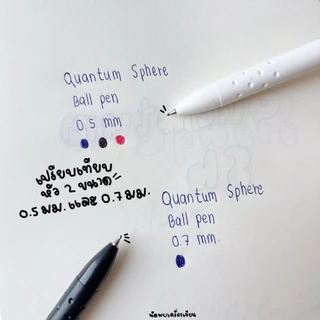 Quantum Sphere
Ball pen
0.5 mm
เปรียบเทียบ
หัว 2 ขนาด
0.5 มม. และ 0.7 มม.
Quantum Sphere
Ball pen
0.7 mm.